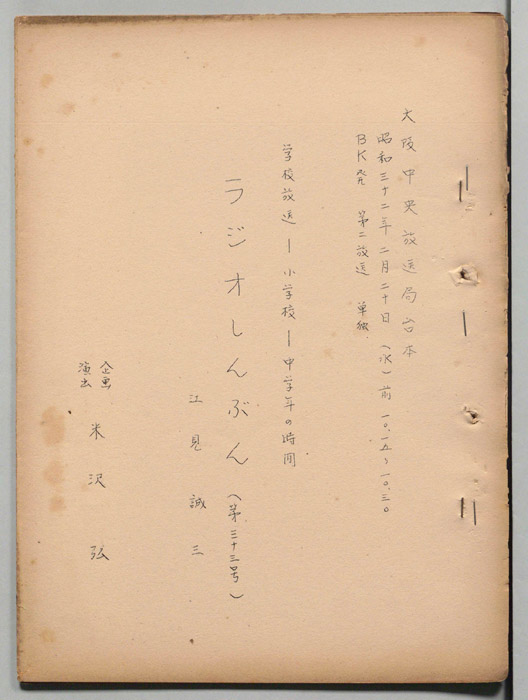 大阪中央放送局台本
昭和三十二年二月二十日（水）前一〇.一五～一〇.三〇
BK発　第二放送　単独
学校放送ー小学校ー中学年の時間
ラジオしんぶん（第三十三号）
江見誠三
企画
演出
米沢弦